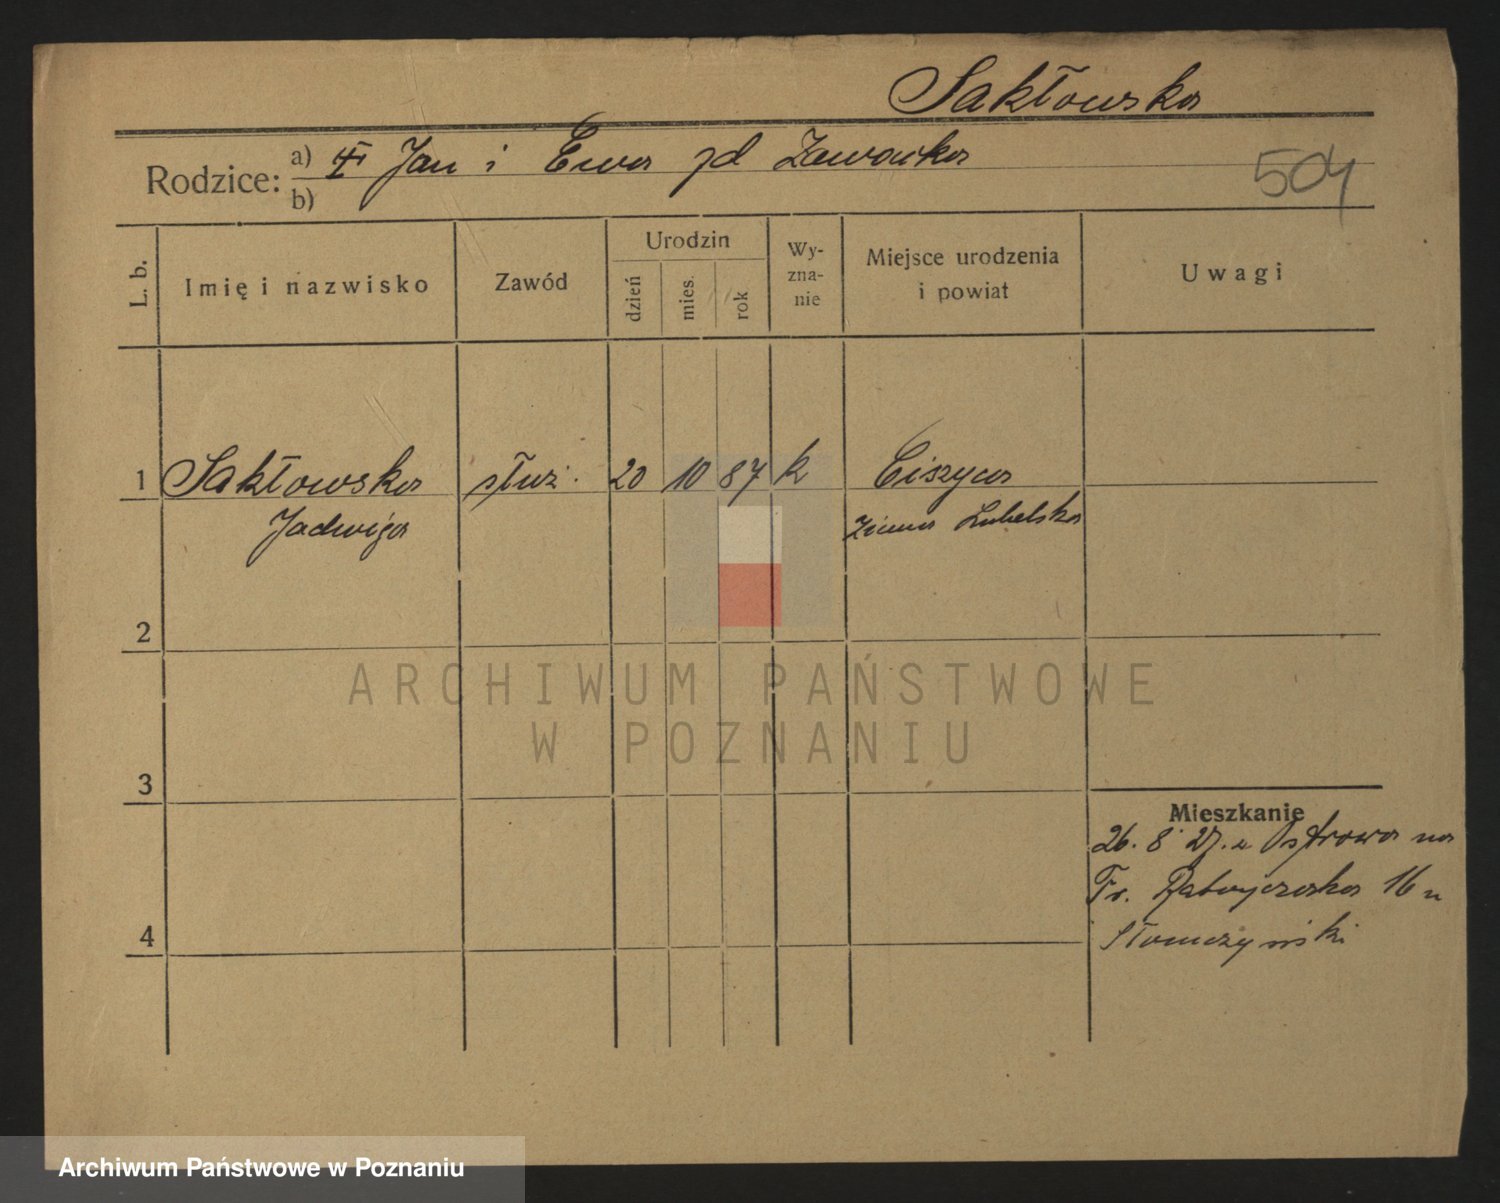 Sakłowska
Rodzice: a) Jan i Ewa zd Zawonka
b)
504
L. b. Imię i nazwisko Zawód Urodzin dzień mies. rok Wy-zna-nie Miejsce urodzenia i powiat Uwagi
1 Sakłowska służ. 20 10 87 k Ciszyca
Jadwiga Ziemia Lubelska
2
3
Mieszkanie
26. 8 27. z Ostrowa na
Fr. Ratajczaka 16 u
4 Słomczyński
ARCHIWUM PAŃSTWOWE
W POZNANIU
Archiwum Państwowe w Poznaniu